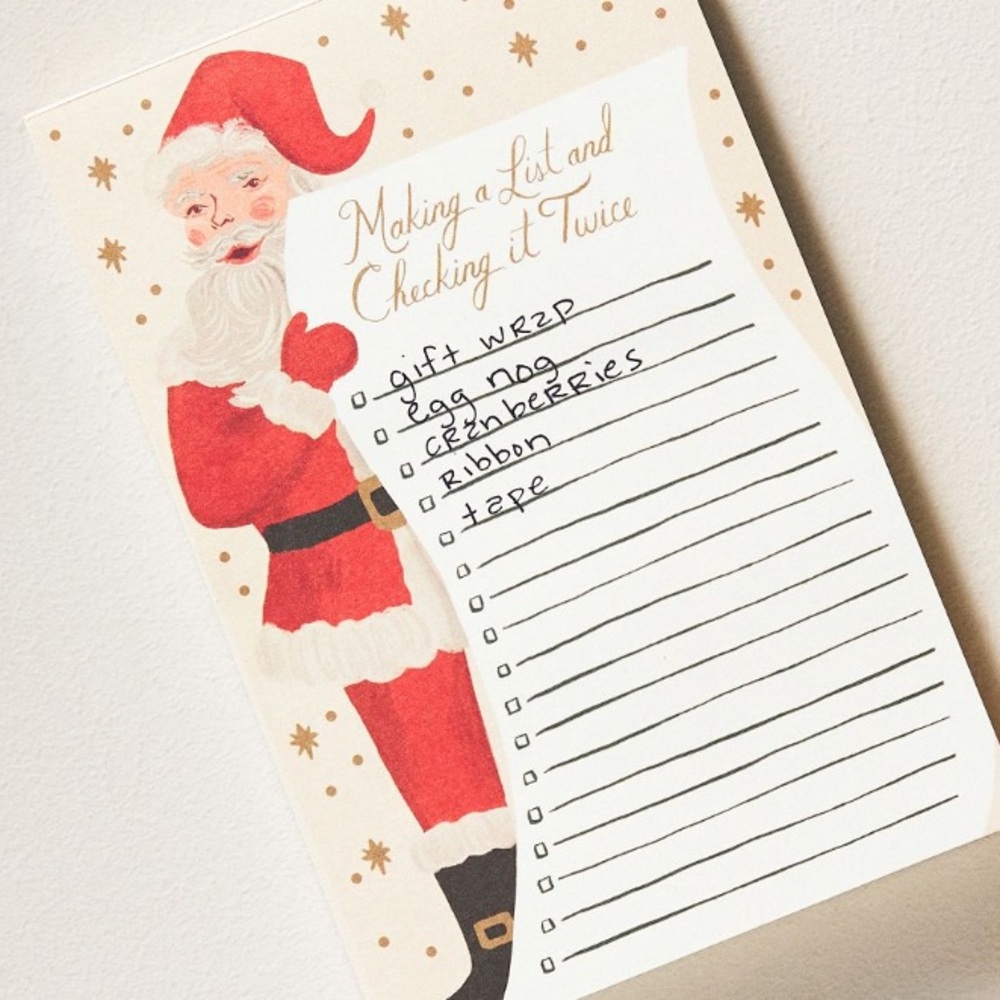 Making a List and
Checking it Twice
gift wRap
egg nog
cRanbeRRies
Ribbon
tape